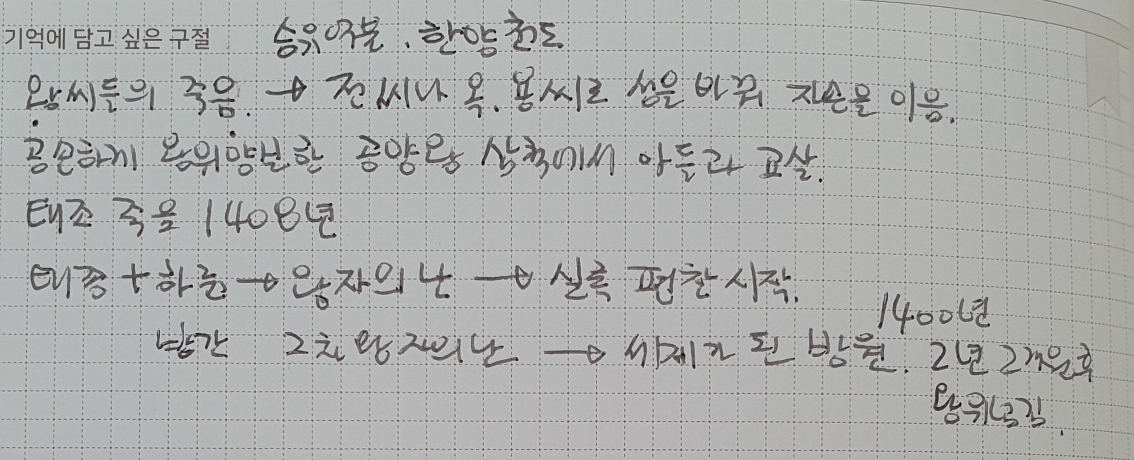 기억에 담고 싶은 구절 숭유억불. 한양천도
왕씨들의 죽음. → 전씨나 옥. 용씨로 성을 바꿔 자손을 이음.
공손하게 왕위양보한 공양왕 삼척에서 아들과 교살.
태조 죽음 1408년
태종 + 하륜 → 왕자의 난 → 실록 편찬 시작.
방간 2차 왕자의 난 → 세제가 된 방원. 1400년
2년 2개월후
왕위